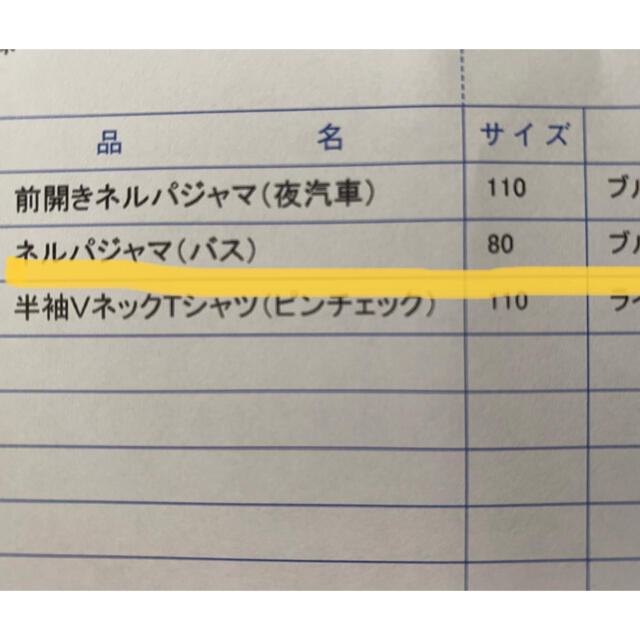 品 名 サイズ
前開きネルパジャマ(夜汽車) 110 ブル
ネルパジャマ(バス) 80 ブル
半袖VネックTシャツ(ピンチェック) 110 ライ